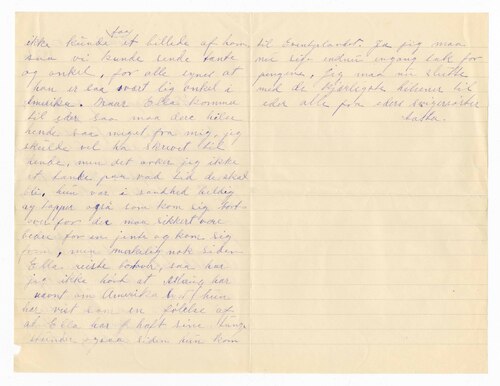 faa
ikke kunde et billede af ham,
saa vi kunde sende tante
og onkel, for alle synes at
han er saa svært lig onkel i
Amerika. Naar Ella kommer
til eder saa maa dere hilse
hende saa meget fra mig, jeg
skulde vel ha skrevet til
hende, men det orker jeg ikke
at tænke paa vad tid de skal
bli, hun var i sandhed heldig
og tapper også som kom sig bort
for der maa sikkert være
bedre for en jente og kom sig
frem, men merkelig nok siden
Ella reiste bortover, saa har
jeg ikke hørt at Aslaug har
nevnt om Amerika, hun
har vist som en følelse af
at Ella har haft sine tunge
stunder også siden hun kom
til Eventyrlandet. Ja jeg maa
nu sige endnu engang tak for
pengene. Jeg maa nu slutte
med de kjærligste hilsener til
eder alle fra eders svigersøster